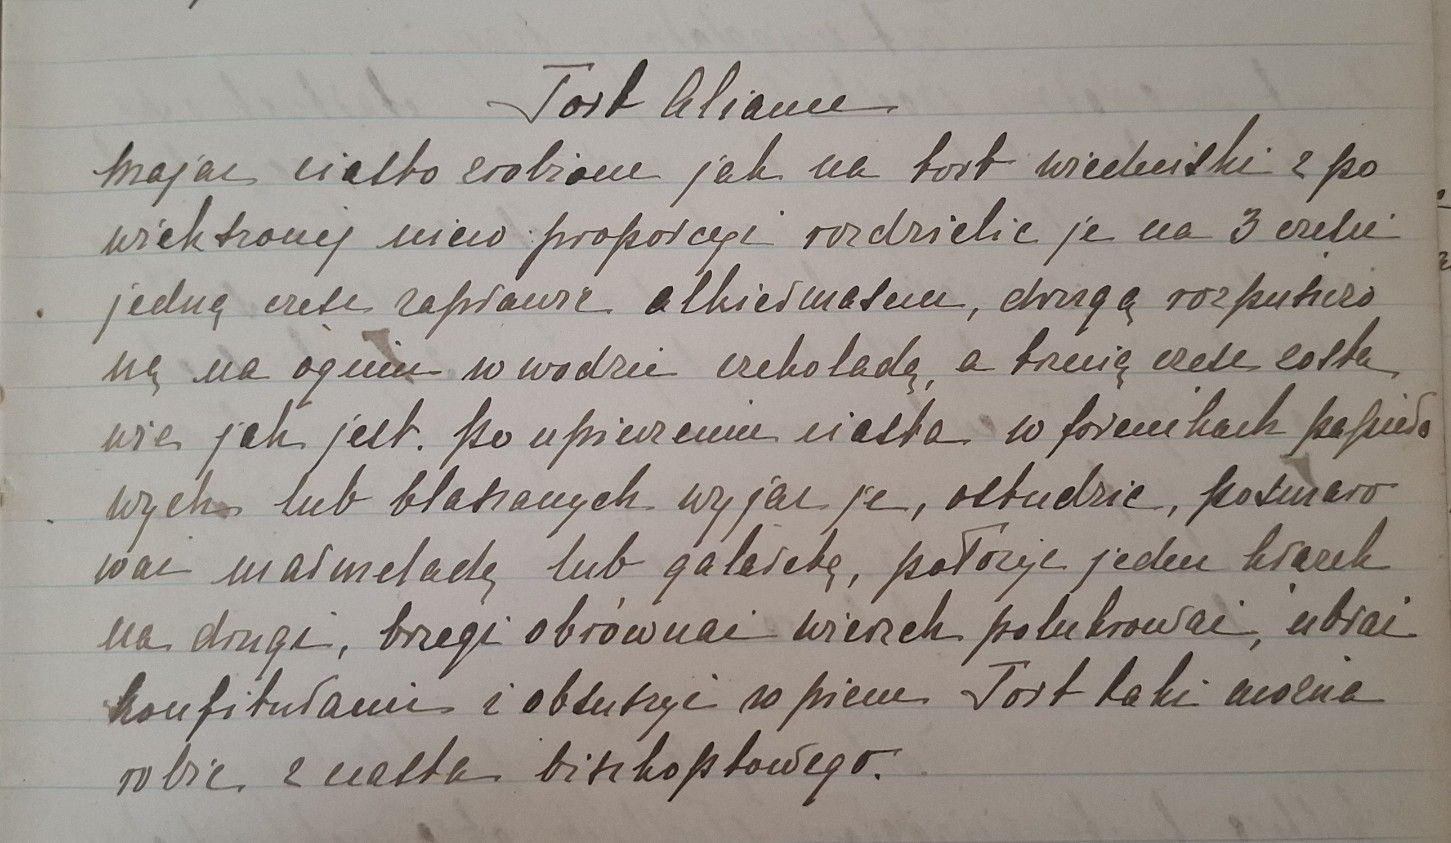 Tort Alians
Mając ciasto zrobione jak na tort wiedeński z po
większonej nieco proporcyi rozdzielić je na 3 części
jedną część zaprawić alkiermasem, drugą rozpuszczo
ną na ogniu w wodzie czekoladą, a trzecią część zosta
wić jak jest. Po upieczeniu ciasta w foremkach papiero
wych lub blaszanych wyjąć je, ostudzić, posmaro
wać marmeladą lub galaretą, położyć jeden krążek
na drugi, brzegi obrównać wierzch polukrować, ubrać
konfiturami i obsuszyć w piecu Tort taki można
robić z ciasta biszkoptowego.